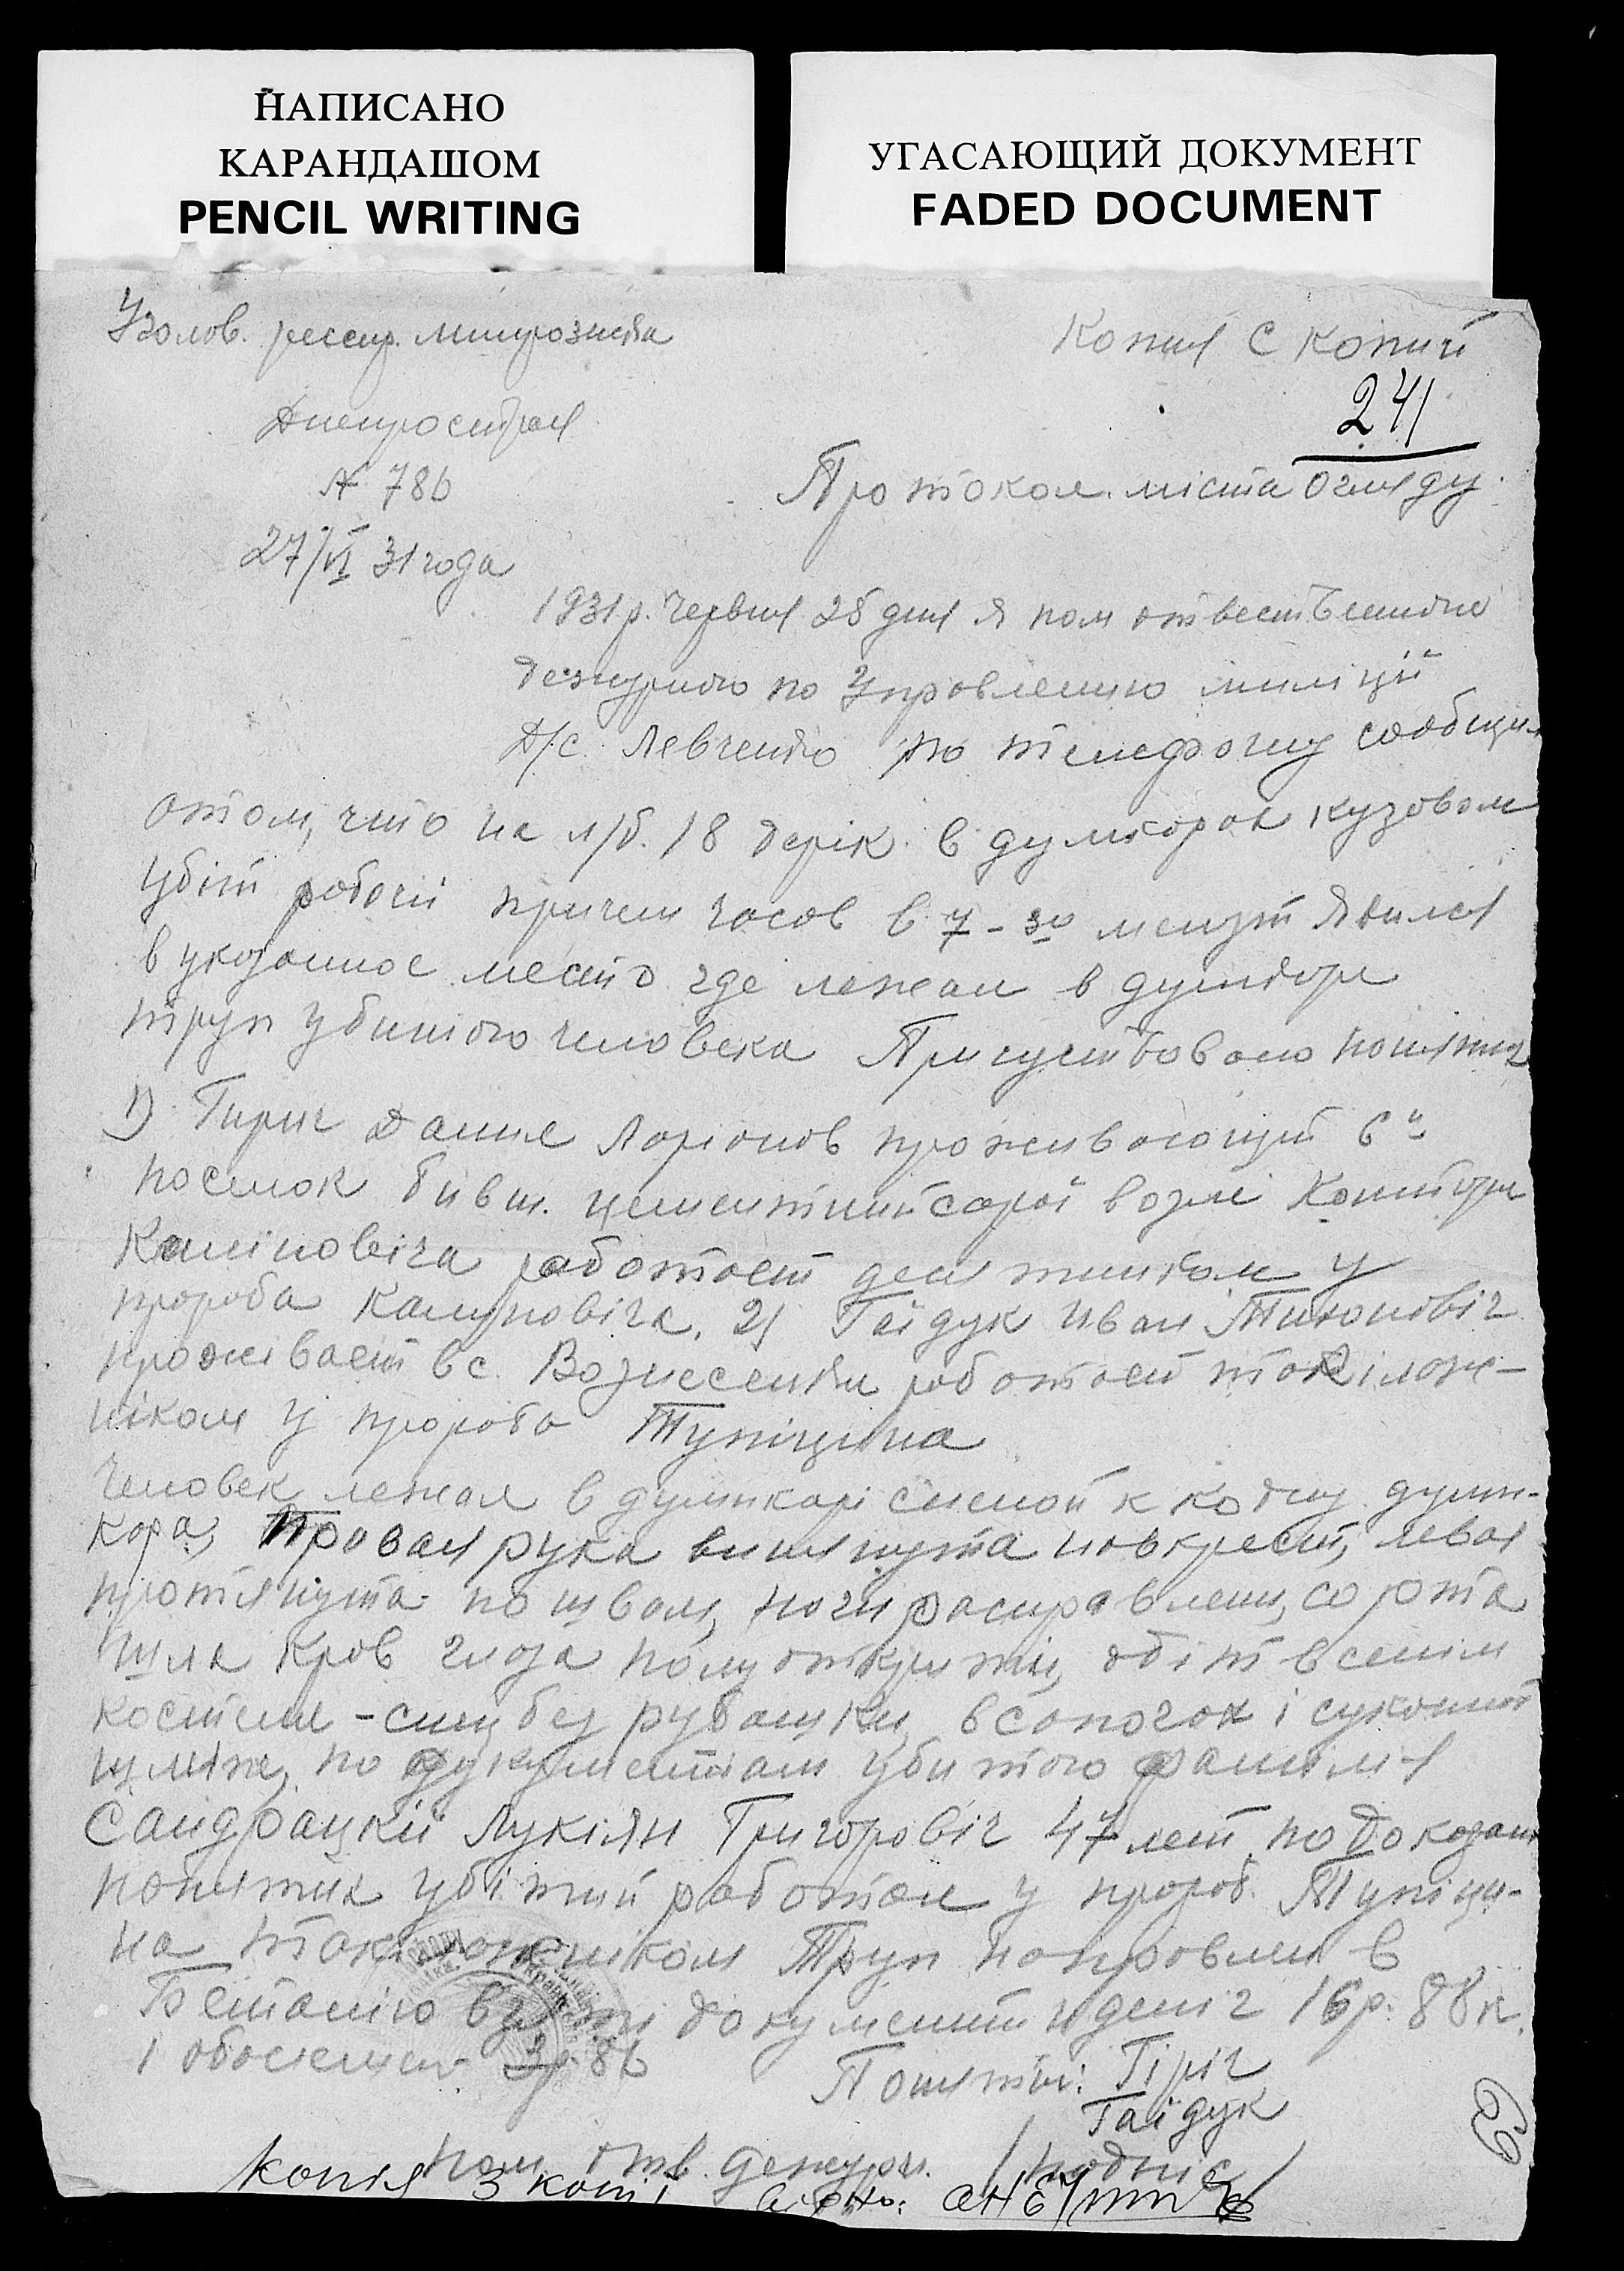 НАПИСАНО
КАРАНДАШОМ
PENCIL WRITING
УГАСАЮЩИЙ ДОКУМЕНТ
FADED DOCUMENT
Уголов.
Копия с копий
Днепрострая
241
№ 786
Протокол міста Огляду
27/VI 31 года
1931 р. Червня 26 дня я пом ответственого
дежурного по Управлению міліціі
Д/с. Левченко по телефону сообщил
о том, что на л/б. 18 дерік в думкорах кузовом
убіт робочи причем часов в 7-30 менут явился
в указанное место где лежал в думкоре
труп убитого человека Присуствовало понятих
1) Гирич Данил Ларіонов проживающий 6й
поселок бивш. цементний сарай возлі Конторы
Каліновіча работает десятником у
прораба Каліновіча. 2) Гайдук Иван Тихоновіч
проживает в с. Вознесенки работает такілаж-
ніком у прораба Тупіцина
Человек лежал в думпкарі спеной к кобну думп-
кора, Правая рука витянута навкрест, левая
протянута по швам, ноги расправлени, со рта
шла кров глаза полуоткрити, обіт в сенім
костюме - без рубашки, в сапогах і суконной
шляпе, по дукументам убитого фаміля
Сандрацкій Лукіян Григоровіч 47 лет по доказани
понятих убітий работал у прораб. Тупіци-
на такілажником Труп направлен в
Бетанію взяти документи и деніг 16 р. 88 к.
і 3 р. 86
Поняті: Гіріч
Гайдук
пом. отв. дежурн. /подпис/
Копія з копії
63